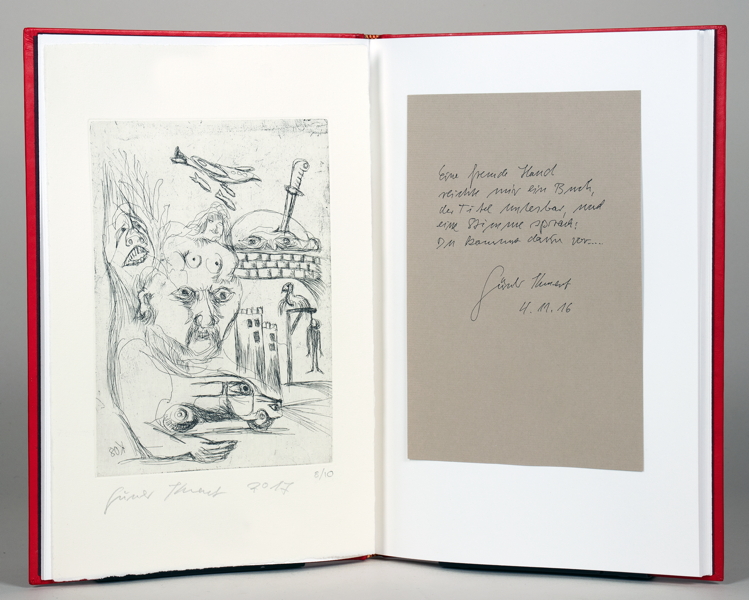 Günter Kunert 2017
8/10
Eine fremde Hand
reichte mir ein Buch,
der Titel unlesbar, und
eine Stimme sprach:
Du kommst darin vor...
Günter Kunert
4.11.16